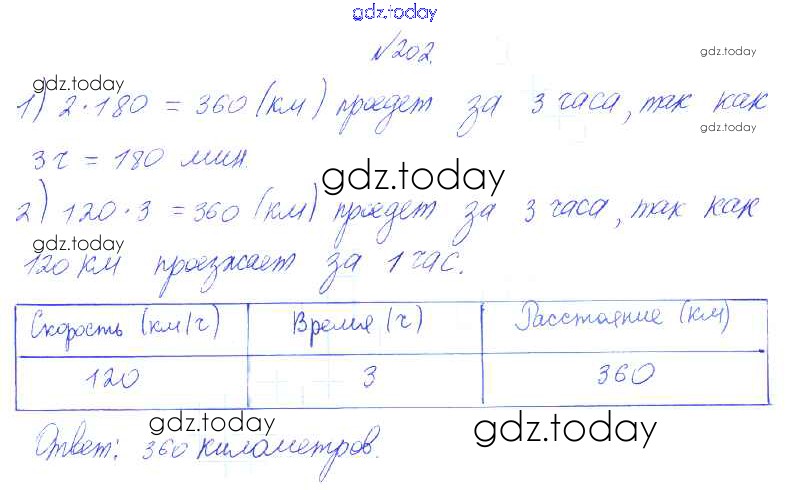 gdz.today
№202.
gdz.today
gdz.today
1) 2·180 = 360 (км) проедет за 3 часа, так как
gdz.today
3 ч = 180 мин.
gdz.today
2) 120·3 = 360 (км) проедет за 3 часа, так как
gdz.today
120 км проезжает за 1 час.
Скорость (км/ч) Время (ч) Расстояние (км)
120 3 360
gdz.today gdz.today
Ответ: 360 километров.